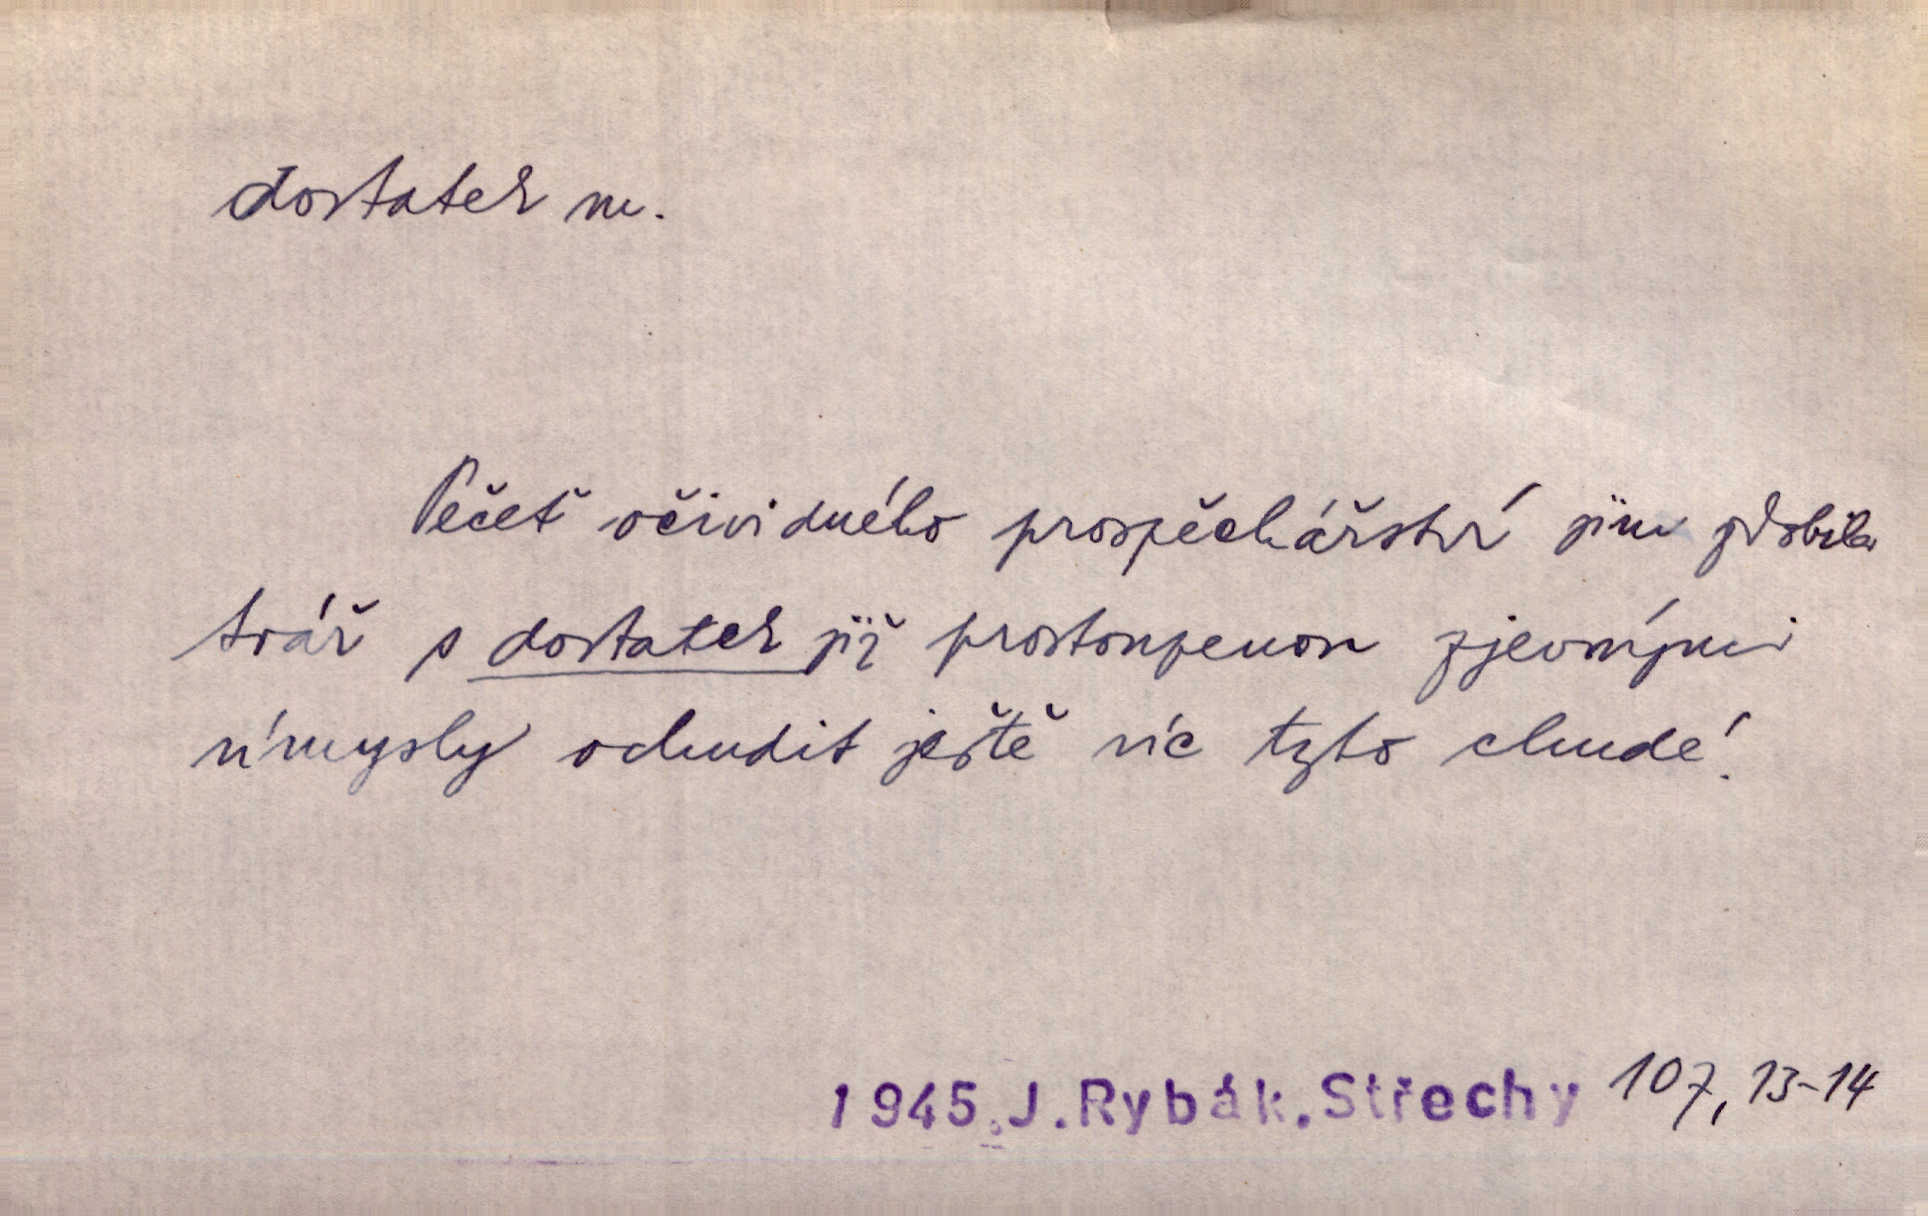 dostatek m.
Pečeť očividného prospěchářství jim zdobila
tvář s dostatek již prostoupenou zjevnými
úmysly ochudit ještě víc tyto chudé!
1945.J.Rybák.Střechy 107, 13-14